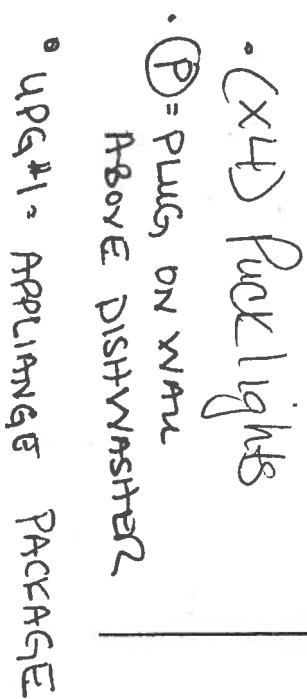 • (x4) Puck lights
• Ⓟ = PLUG ON WALL
ABOVE DISHWASHER
• UPG #1 - APPLIANCE PACKAGE